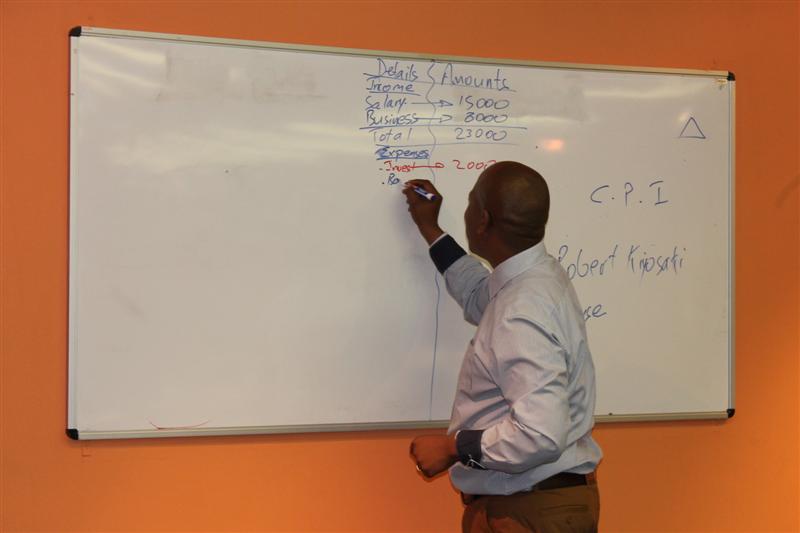 Details Amounts
Income
Salary → 15000
Business → 8000
Total 23000
Expenses
- Invest → 2000
C.P.I
Robert Kiyosati